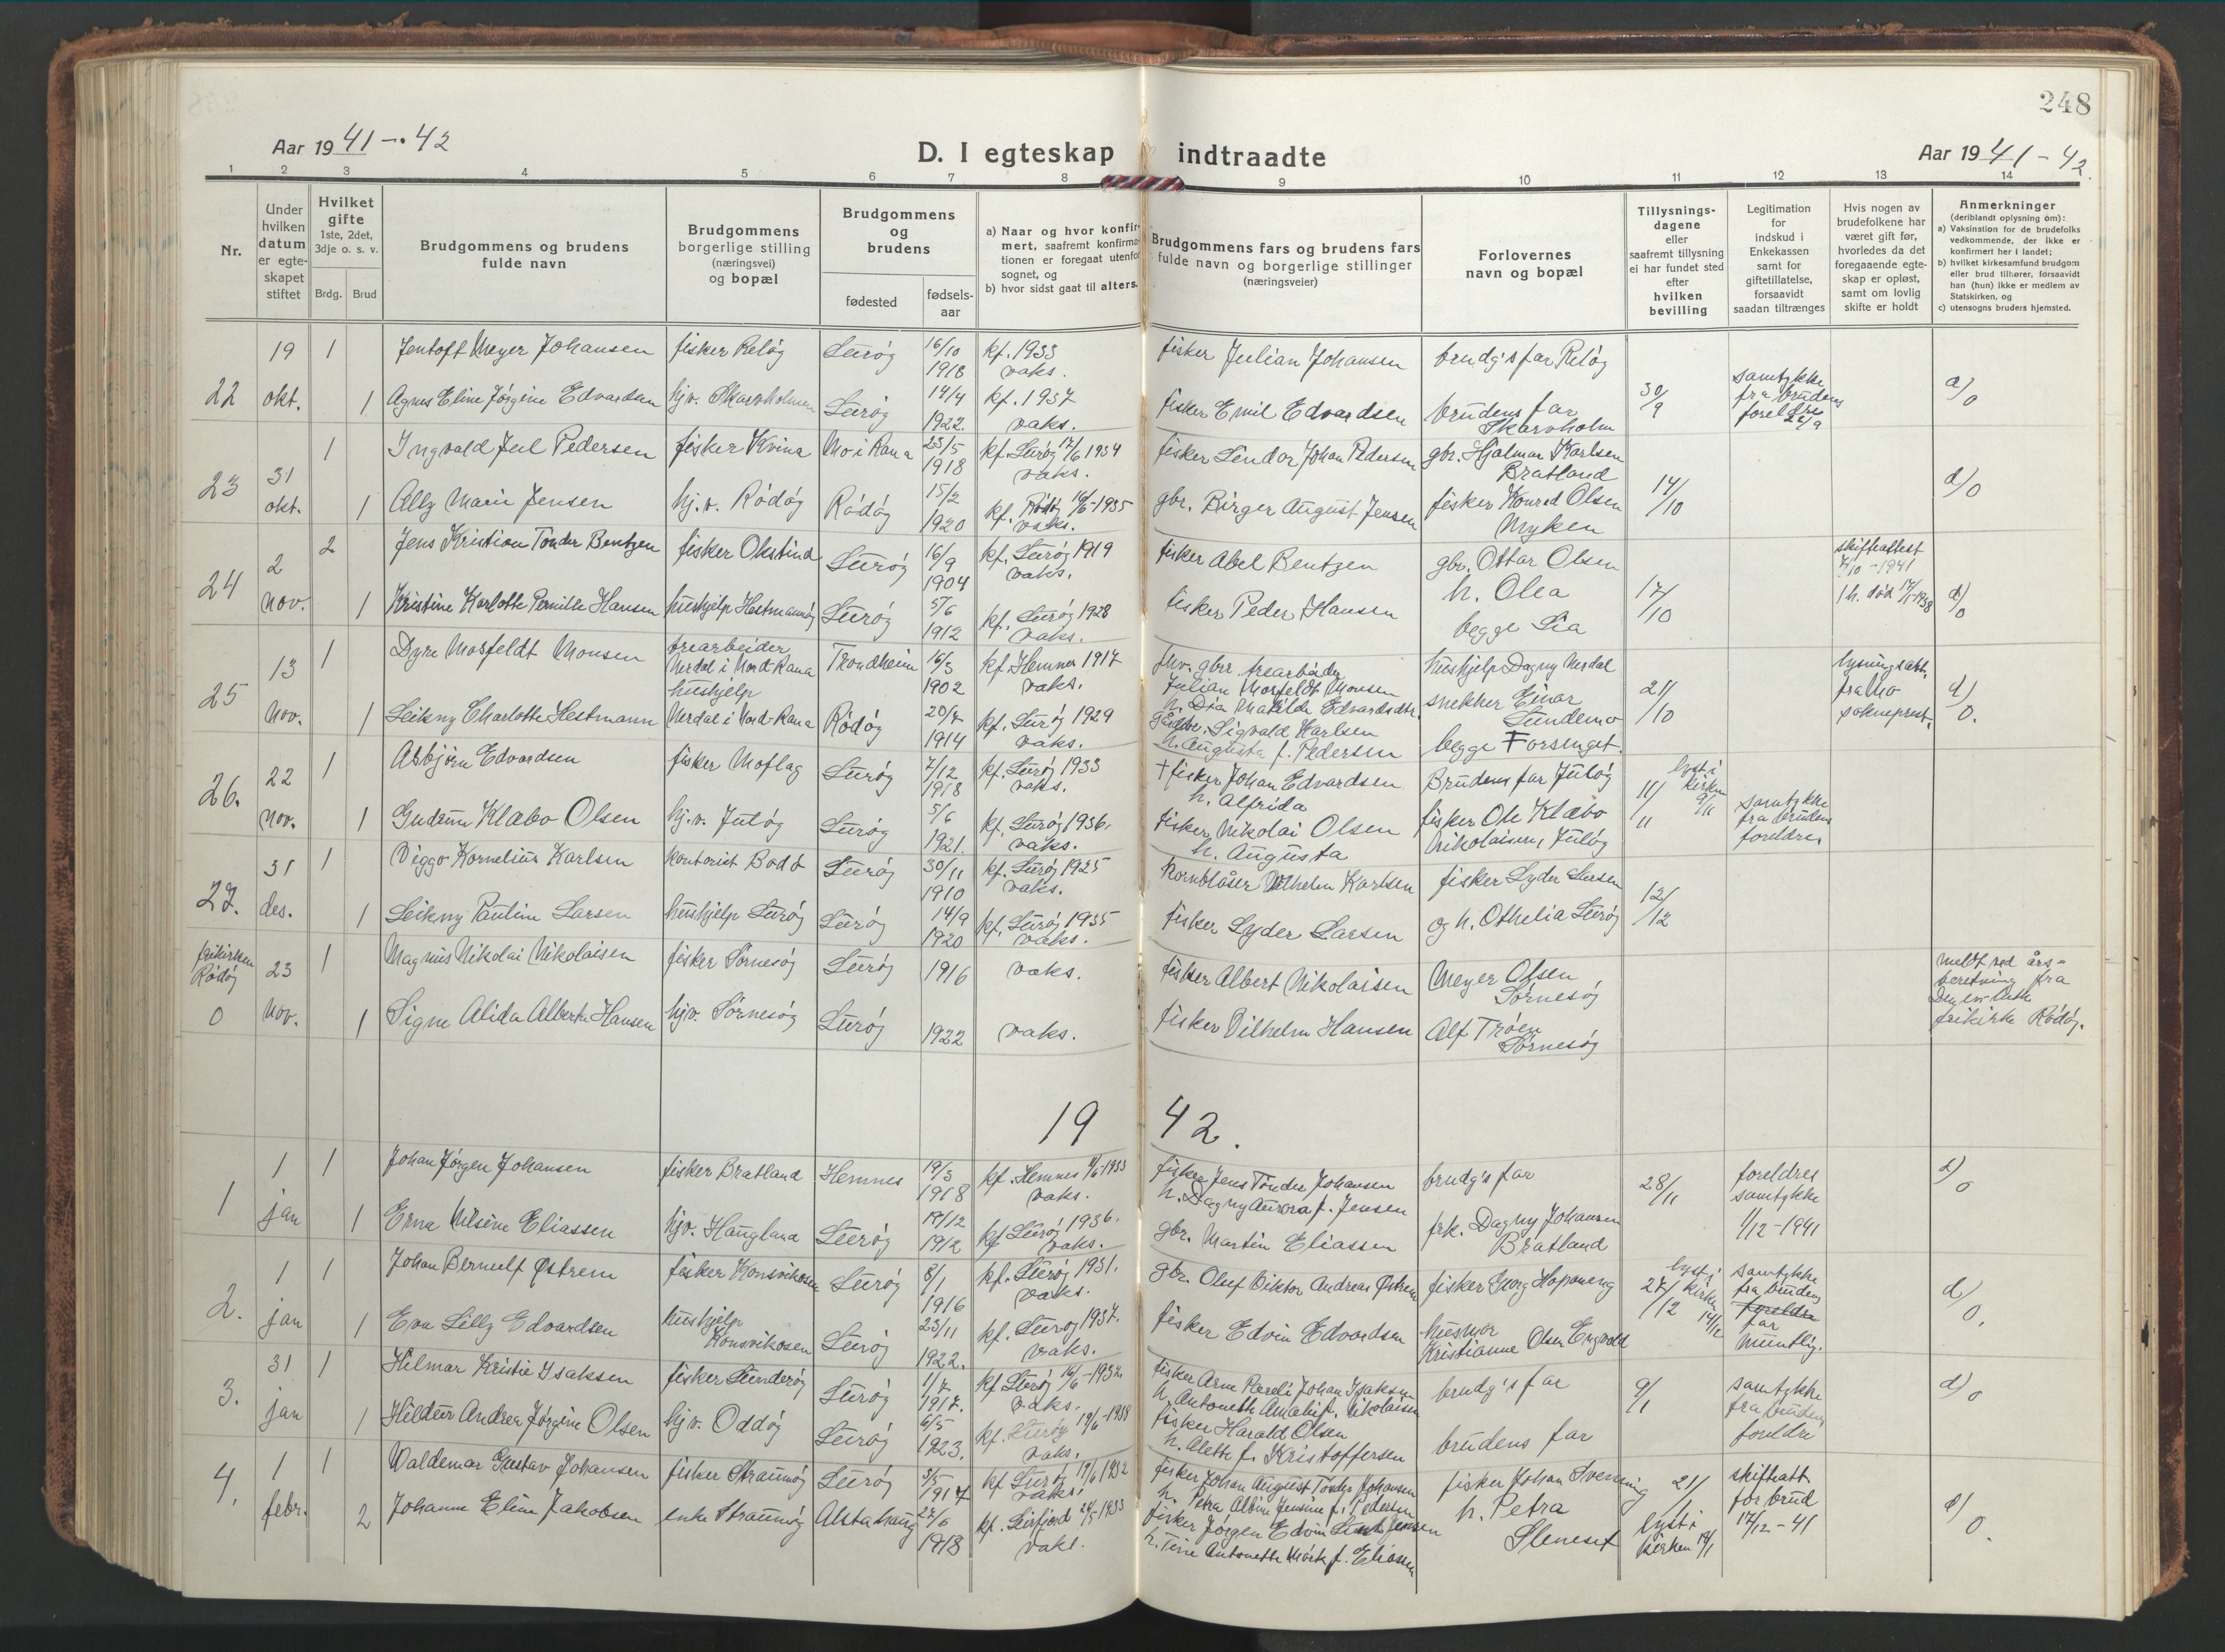 248
Aar 1941-42
D. I egteskap indtraadte
Aar 1941-42.
1 2 3 4 5 6 7 8 9 10 11 12 13 14
Nr.
Under hvilken datum er egte-skapet stiftet
Hvilket gifte 1ste, 2det, 3dje o. s. v.
Brdg. Brud
Brudgommens og brudens fulde navn
Brudgommens borgerlige stilling (næringsvei) og bopæl
Brudgommens og brudens
fødested
fødsels-aar
a) Naar og hvor konfir-mert, saafremt konfirma-tionen er foregaat utenfor sognet, og
b) hvor sidst gaat til alters.
Brudgommens fars og brudens fars fulde navn og borgerlige stillinger (næringsveier)
Forlovernes navn og bopæl
Tillysnings-dagene eller saafremt tillysning ei har fundet sted efter hvilken bevilling
Legitimation for indskud i Enkekassen samt for giftetillatelse, forsaavidt saadan tiltrænges
Hvis nogen av brudefolkene har været gift før, hvorledes da det foregaaende egte-skap er opløst, samt om lovlig skifte er holdt
Anmerkninger (deriblandt oplysning om):
a) Vaksination for de brudefolks vedkommende, der ikke er konfirmert her i landet;
b) hvilket kirkesamfund brudgom eller brud tilhører, forsaavidt han (hun) ikke er medlem av Statskirken, og
c) utensogns bruders hjemsted.
22 19 okt. 1 Jentoft Meyer Johansen fisker Reløy Lurøy 16/10 1918 kf. 1933 vaks. fisker Julian Johansen brudg's far Reløy
1 Agnes Eline Jørgine Edvardsen hjv. Skarvholmen Lurøy 14/4 1922. kf. 1937 vaks. fisker Emil Edvardsen brudens far Skarvholm 30/9 samtykke fra brudens foreldre 26/9 d/0
23 31 okt. 1 Ingvald Jul Pedersen fisker Kvina Mo i Rana 23/5 1918 kf. Lurøy 17/6 1934 vaks. fisker Lindor Johan Pedersen gbr. Hjalmar Karlsen Bratland
1 Ally Marie Jensen hj.v. Rødøy Rødøy 15/2 1920 kf. Rødøy 16/6-1935 vaks. gbr. Birger August Jensen fisker Konrad Olsen Myken 14/10 d/0
24 2 nov. 2 Jens Kristian Tønder Bentzen fisker Okstind Lurøy 16/9 1904 kf. Lurøy 1919 vaks. fisker Abel Bentzen gbr. Ottar Olsen skifteattest 7/10-1941
1 Kristine Karlotte Pernille Hansen hushjelp Hestmannøy Lurøy 5/6 1912 kf. Lurøy 1928 vaks. fisker Peder Hansen h. Olea begge Lia 17/10 1 h. død 17/1-1938 d/0
25 13 nov. 1 Dyre Mosfeldt Monsen trearbeider Nerdal i Nord-Rana Trondheim 16/3 1902 kf. Hemnes 1917 vaks. Julian Mosfeldt Monsen h. Dia Matilde Edvardsdtr. hushjelp Dagny Nerdal
1 Leikny Charlotte Hestmann hushjelp Nerdal i Nord-Rana Rødøy 20/7 1914 kf. Lurøy 1929 vaks. Gårdbr. Sigvald Karlsen h. Augusta f. Pedersen snekker Einar Lundemo begge Forsenget. 21/10 lysningsatt. fra Mo sokneprest. d/0.
26. 22 nov. 1 Asbjørn Edvardsen fisker Moflag Lurøy 7/12 1918 kf. Lurøy 1933 vaks. † fisker Johan Edvardsen h. Alfrida Brudens far Juløy
1 Gudrun Klæbo Olsen hj.v. Juløy Lurøy 5/6 1921. kf. Lurøy 1936. vaks. fisker Nikolai Olsen h. Augusta fisker Ole Klæbo Nikolaisen, Juløy 11/11 lyst i kirken 9/11 samtykke fra brudens foreldre
27. 31 des. 1 Viggo Kornelius Karlsen kontorist Bodø Lurøy 30/11 1910 kf. Lurøy 1925 vaks. Kornblåser Vilhelm Karlsen fisker Lyder Larsen
1 Leikny Pauline Larsen hushjelp Lurøy Lurøy 14/9 1920 kf. Lurøy 1935 vaks. fisker Lyder Larsen og h. Othelia Lurøy 12/12
frikirken Rødøy 0 23 nov. 1 Magnus Nikolai Nikolaisen fisker Sørnesøy Lurøy 1916 vaks. fisker Albert Nikolaisen Meyer Olsen Sørnesøy meldt ved års-beretning fra Den ev. luth frikirke Rødøy.
1 Signe Alida Alberte Hansen hjv. Sørnesøy Lurøy 1922 vaks. fisker Vilhelm Hansen Alf Trøen Sørnesøy
1942.
1 1 jan 1 Johan Jørgen Johansen fisker Bratland Hemnes 19/3 1918 kf. Hemnes 4/6-1933 vaks. fisker Jens Tønder Johansen h. Dagny Aurora f. Jensen brudg's far 28/11 foreldres samtykke 1/12-1941 d/0
1 Erna Nilsine Eliassen hjv. Haugland Lurøy 19/12 1912 kf Lurøy 1936. vaks. gbr. Martin Eliassen frk. Dagny Johansen Bratland
2. 1 jan 1 Johan Bernulf Østrem fisker Konsvikosen Lurøy 8/1 1916 kf. Lurøy 1931. vaks. gbr. Oluf Viktor Andreas Østrem fisker Georg Hopaneng
1 Eva Lilly Edvardsen hushjelp Konsvikosen Lurøy 23/11 1922. kf. Lurøy 1937. vaks. fisker Edvin Edvardsen husmor Kristianne Olsen Engvold 27/12 lyst i kirken 14/12 samtykke fra brudens foreldre far muntlig. d/0.
3. 31 jan 1 Hilmar Kristie Isaksen fisker Sunderøy Lurøy 1/7 1917. kf Lurøy 16/6-1932 vaks. fisker Arne Pareli Johan Isaksen h. Antonette Amalie f. Nikolaisen brudg's far 9/1 samtykke fra brudens foreldre d/0
1 Hildur Andrea Jørgine Olsen hjv. Oddøy Lurøy 6/5 1923. kf. Lurøy 19/6-1938 vaks. fisker Harald Olsen h. Alette f. Kristoffersen brudens far
4. 1 febr. 1 Valdemar Gustav Johansen fisker Straumøy Lurøy 3/5 1917 kf Lurøy 19/6 1932 vaks. fisker Johan August Tønder Johansen h. Petra Albine Jensine f. Pedersen fisker Johan Svenning 21/1 skifteatt. for brud 17/12-41
2 Johanne Eline Jakobsen enke Straumøy Alstahaug 27/6 1913 kf. Leirfjord 24/5-1933 vaks. fisker Jørgen Edvin Jensen h. Tine Antonette Mörk f. Eliassen h. Petra Sleneset lyst i kirken 18/1 d/0.